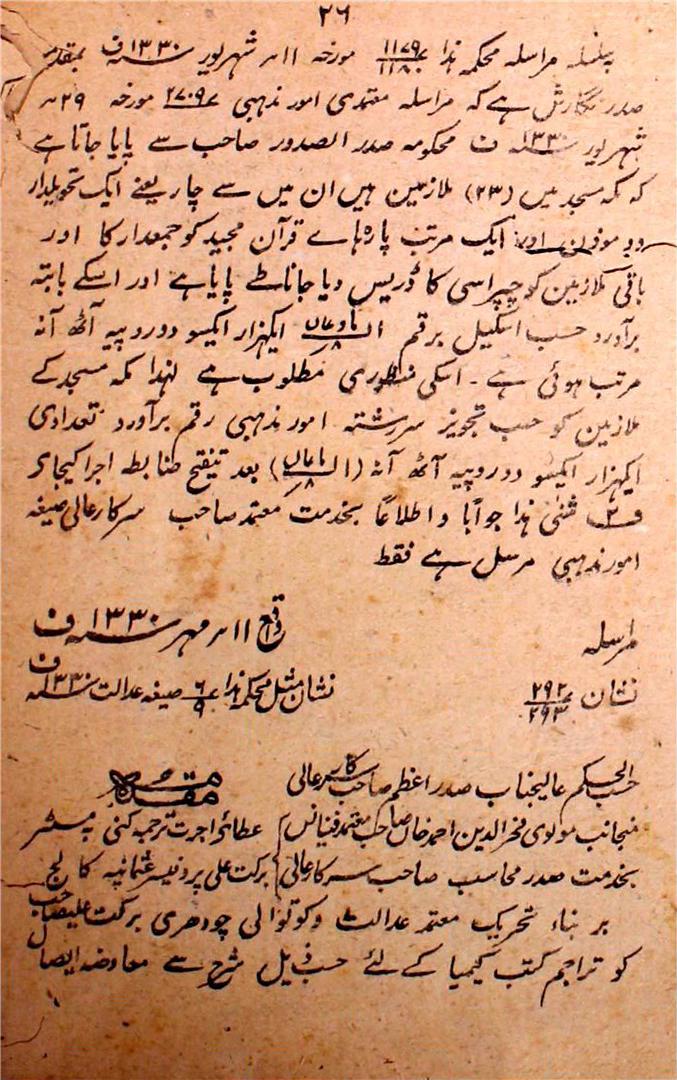 ۲۶
بسلسلہ مراسلہ محکمہ ہذا ۱۱۷۹/۱۱۸۰ مورخہ ۱۱؍ شہریور ۱۳۳۰ف بمقدمہ
صدر نگارش ہے کہ مراسلہ معتمدی امور مذہبی ۲۷۰۹ مورخہ ۲۹؍
شہریور ۱۳۳۰ف محکومہ صدر الصدور صاحب سے پایا جاتا ہے
کہ مکہ مسجد میں (۲۳) ملازمین ہیں ان میں سے چار یعنے ایک تحویلدار
دو موذن اور ایک مرتب پارہاے قرآن مجید کو جمعدار کا اور
باقی ملازمین کو چپراسی کا ڈریس دیا جانا طے پایا ہے اور اسکے بابتہ
برآورد حسب اسکیل برقم ایکہزار ایکسو دو روپیہ آٹھ آنہ
مرتب ہوئی ہے۔ اسکی منظوری مطلوب ہے لہذا مکہ مسجد کے
ملازمین کو حسب تجویز سررشتہ امور مذہبی رقم برآورد تعدادی
ایکہزار ایکسو دو روپیہ آٹھ آنہ بعد تنقیح ضابطہ اجرا کیجائے
ف۲ مثنیٰ ہذا جواباً و اطلاعاً بخدمت معتمد صاحب سرکار عالی صیغہ
امور مذہبی مرسل ہے فقط
مراسلہ واقع ۱۱؍ مہر ۱۳۳۰ف
نشان ۲۹۲/۲۹۳ نشان مثل محکمہ ہذا ۶/۹ صیغہ عدالت ۱۳۳۰ف
حسب الحکم عالیجناب صدر اعظم صاحب سرکار عالی مقدمہ
منجانب مولوی فخر الدین احمد خاں صاحب معتمد فینانس عطائے اجرت ترجمہ کنی بہ مسٹر
بخدمت صدر محاسب صاحب سرکار عالی برکت علی پروفیسر عثمانیہ کالج
بر بناء تحریک معتمد عدالت و کوتوالی چودھری برکت علیصاحب
کو تراجم کتب کیمیا کے لئے حسب ذیل شرح سے معاوضہ ایصال